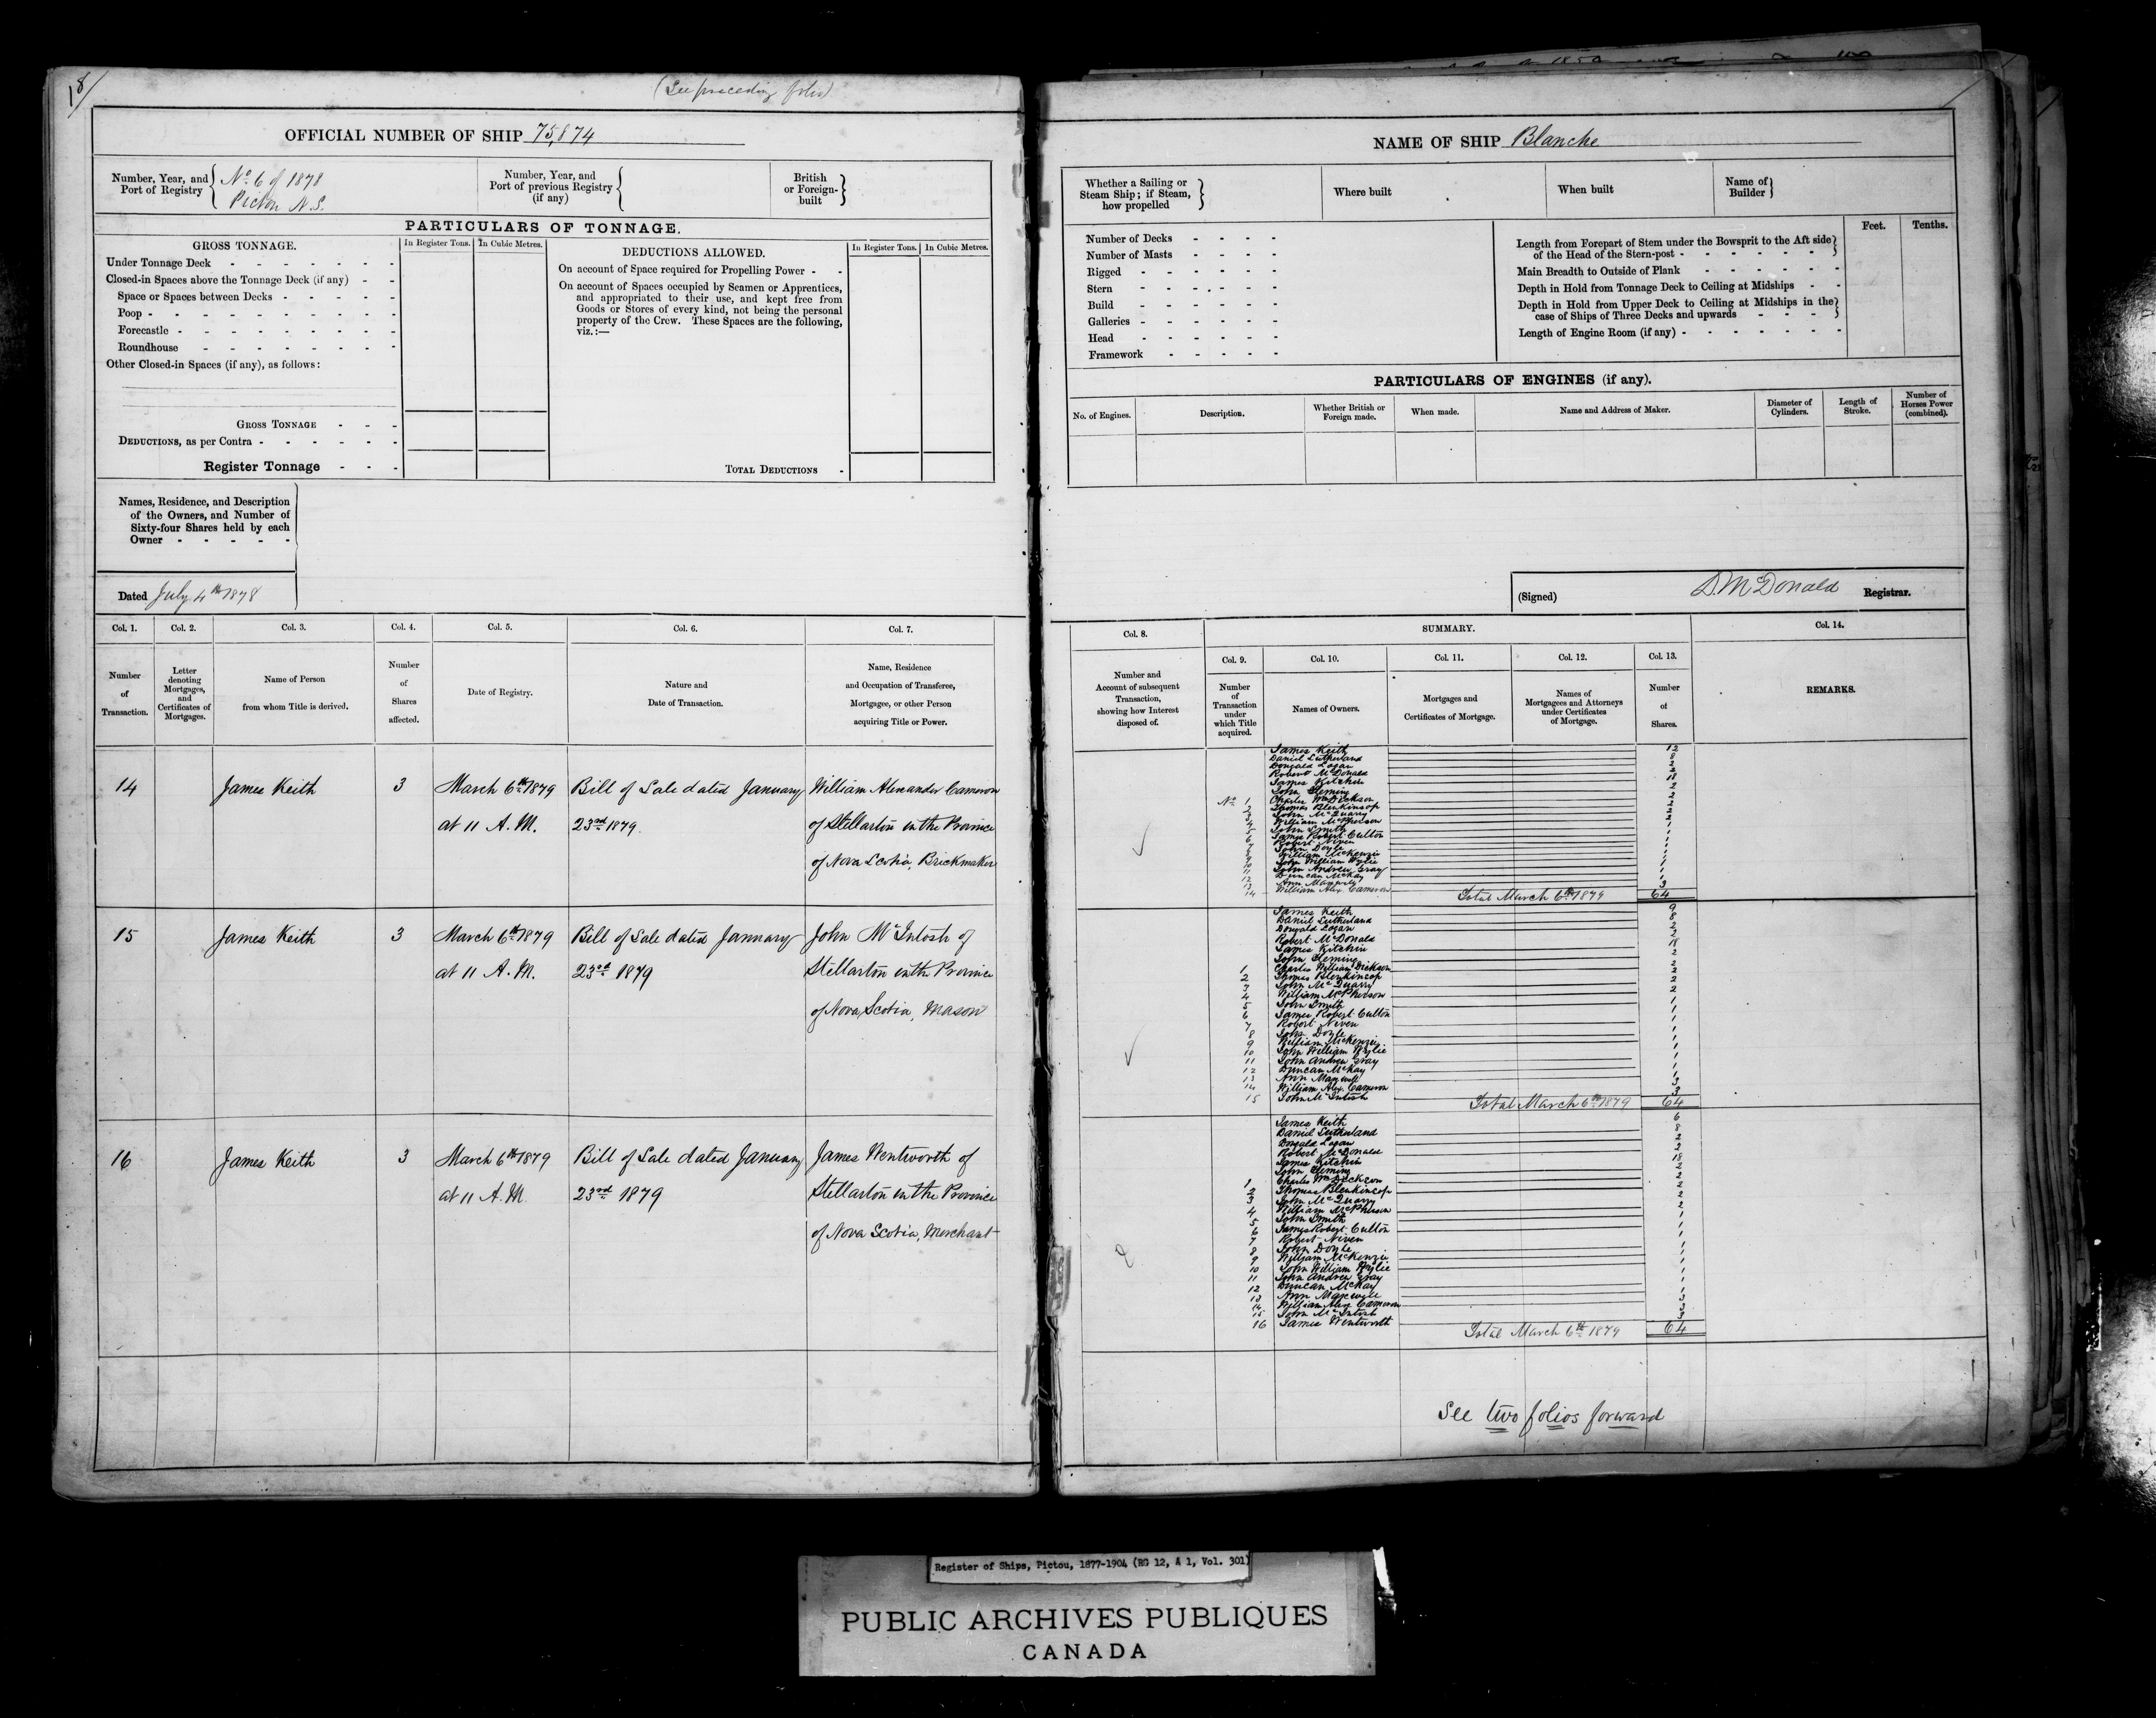 18/
(See preceding folio)
OFFICIAL NUMBER OF SHIP 75,874
Number, Year, and Port of Registry { No. 6 of 1878 Pictou N.S.
Number, Year, and Port of previous Registry (if any) {
British or Foreign-built }
PARTICULARS OF TONNAGE.
GROSS TONNAGE.
In Register Tons.
In Cubic Metres.
DEDUCTIONS ALLOWED.
In Register Tons.
In Cubic Metres.
Under Tonnage Deck
Closed-in Spaces above the Tonnage Deck (if any)
Space or Spaces between Decks
Poop
Forecastle
Roundhouse
Other Closed-in Spaces (if any), as follows:
GROSS TONNAGE
DEDUCTIONS, as per Contra
Register Tonnage
On account of Space required for Propelling Power
On account of Spaces occupied by Seamen or Apprentices,
and appropriated to their use, and kept free from
Goods or Stores of every kind, not being the personal
property of the Crew. These Spaces are the following,
viz.:—
TOTAL DEDUCTIONS
Names, Residence, and Description
of the Owners, and Number of
Sixty-four Shares held by each
Owner
Dated July 4th 1878
Col. 1. Col. 2. Col. 3. Col. 4. Col. 5. Col. 6. Col. 7.
Number of Transaction.
Letter denoting Mortgages, and Certificates of Mortgages.
Name of Person from whom Title is derived.
Number of Shares affected.
Date of Registry.
Nature and Date of Transaction.
Name, Residence and Occupation of Transferee, Mortgagee, or other Person acquiring Title or Power.
14 James Keith 3 March 6th 1879 Bill of Sale dated January William Alexander Cameron
at 11 A.M. 23rd 1879. of Stellarton in the Province
of Nova Scotia, Brickmaker
15 James Keith 3 March 6th 1879 Bill of Sale dated January John McIntosh of
at 11 A.M. 23rd 1879 Stellarton in the Province
of Nova Scotia, Mason
16 James Keith 3 March 6th 1879 Bill of Sale dated January James Wentworth of
at 11 A.M. 23rd 1879 Stellarton in the Province
of Nova Scotia, Merchant
NAME OF SHIP Blanche
Whether a Sailing or Steam Ship; if Steam, how propelled }
Where built
When built
Name of Builder }
Number of Decks
Number of Masts
Rigged
Stern
Build
Galleries
Head
Framework
Feet. Tenths.
Length from Forepart of Stem under the Bowsprit to the Aft side
of the Head of the Stern-post
Main Breadth to Outside of Plank
Depth in Hold from Tonnage Deck to Ceiling at Midships
Depth in Hold from Upper Deck to Ceiling at Midships in the
case of Ships of Three Decks and upwards
Length of Engine Room (if any)
PARTICULARS OF ENGINES (if any).
No. of Engines.
Description.
Whether British or Foreign made.
When made.
Name and Address of Maker.
Diameter of Cylinders.
Length of Stroke.
Number of Horses Power (combined).
(Signed) D. McDonald Registrar.
Col. 8.
SUMMARY.
Col. 14.
Col. 9. Col. 10. Col. 11. Col. 12. Col. 13.
Number and Account of subsequent Transaction, showing how Interest disposed of.
Number of Transaction under which Title acquired.
Names of Owners.
Mortgages and Certificates of Mortgage.
Names of Mortgagees and Attorneys under Certificates of Mortgage.
Number of Shares.
REMARKS.
James Keith 12
Daniel Sutherland 8
Donald Logan 2
Robert McDonald 2
James Kitchin 18
John Fleming 2
No. 1 Charles Wm Dickson 2
2 Thomas Blenkinsop 2
3 John McQuarry 2
4 William McPherson 2
5 John Smith 1
6 James Robert Culton 1
7 Robert Niven 1
8 John Doyle 1
9 William McKenzie 1
10 John William Wylie 1
11 John Andrew Gray 1
12 Duncan McKay 1
13 Ann Maxwell 1
14 William Alex. Cameron 3
Total March 6th 1879 64
James Keith 9
Daniel Sutherland 8
Donald Logan 2
Robert McDonald 2
James Kitchin 18
John Fleming 2
1 Charles William Dickson 2
2 Thomas Blenkinsop 2
3 John McQuarry 2
4 William McPherson 2
5 John Smith 1
6 James Robert Culton 1
7 Robert Niven 1
8 John Doyle 1
9 William McKenzie 1
10 John William Wylie 1
11 John Andrew Gray 1
12 Duncan McKay 1
13 Ann Maxwell 1
14 William Alex. Cameron 3
15 John McIntosh 3
Total March 6th 1879 64
James Keith 6
Daniel Sutherland 8
Donald Logan 2
Robert McDonald 2
James Kitchin 18
John Fleming 2
1 Charles Wm Dickson 2
2 Thomas Blenkinsop 2
3 John McQuarry 2
4 William McPherson 2
5 John Smith 1
6 James Robert Culton 1
7 Robert Niven 1
8 John Doyle 1
9 William McKenzie 1
10 John William Wylie 1
11 John Andrew Gray 1
12 Duncan McKay 1
13 Ann Maxwell 1
14 William Alex Cameron 3
15 John McIntosh 3
16 James Wentworth 3
Total March 6th 1879 64
See two folios forward
Register of Ships, Pictou, 1877-1904 (RG 12, A 1, Vol. 301)
PUBLIC ARCHIVES PUBLIQUES
CANADA